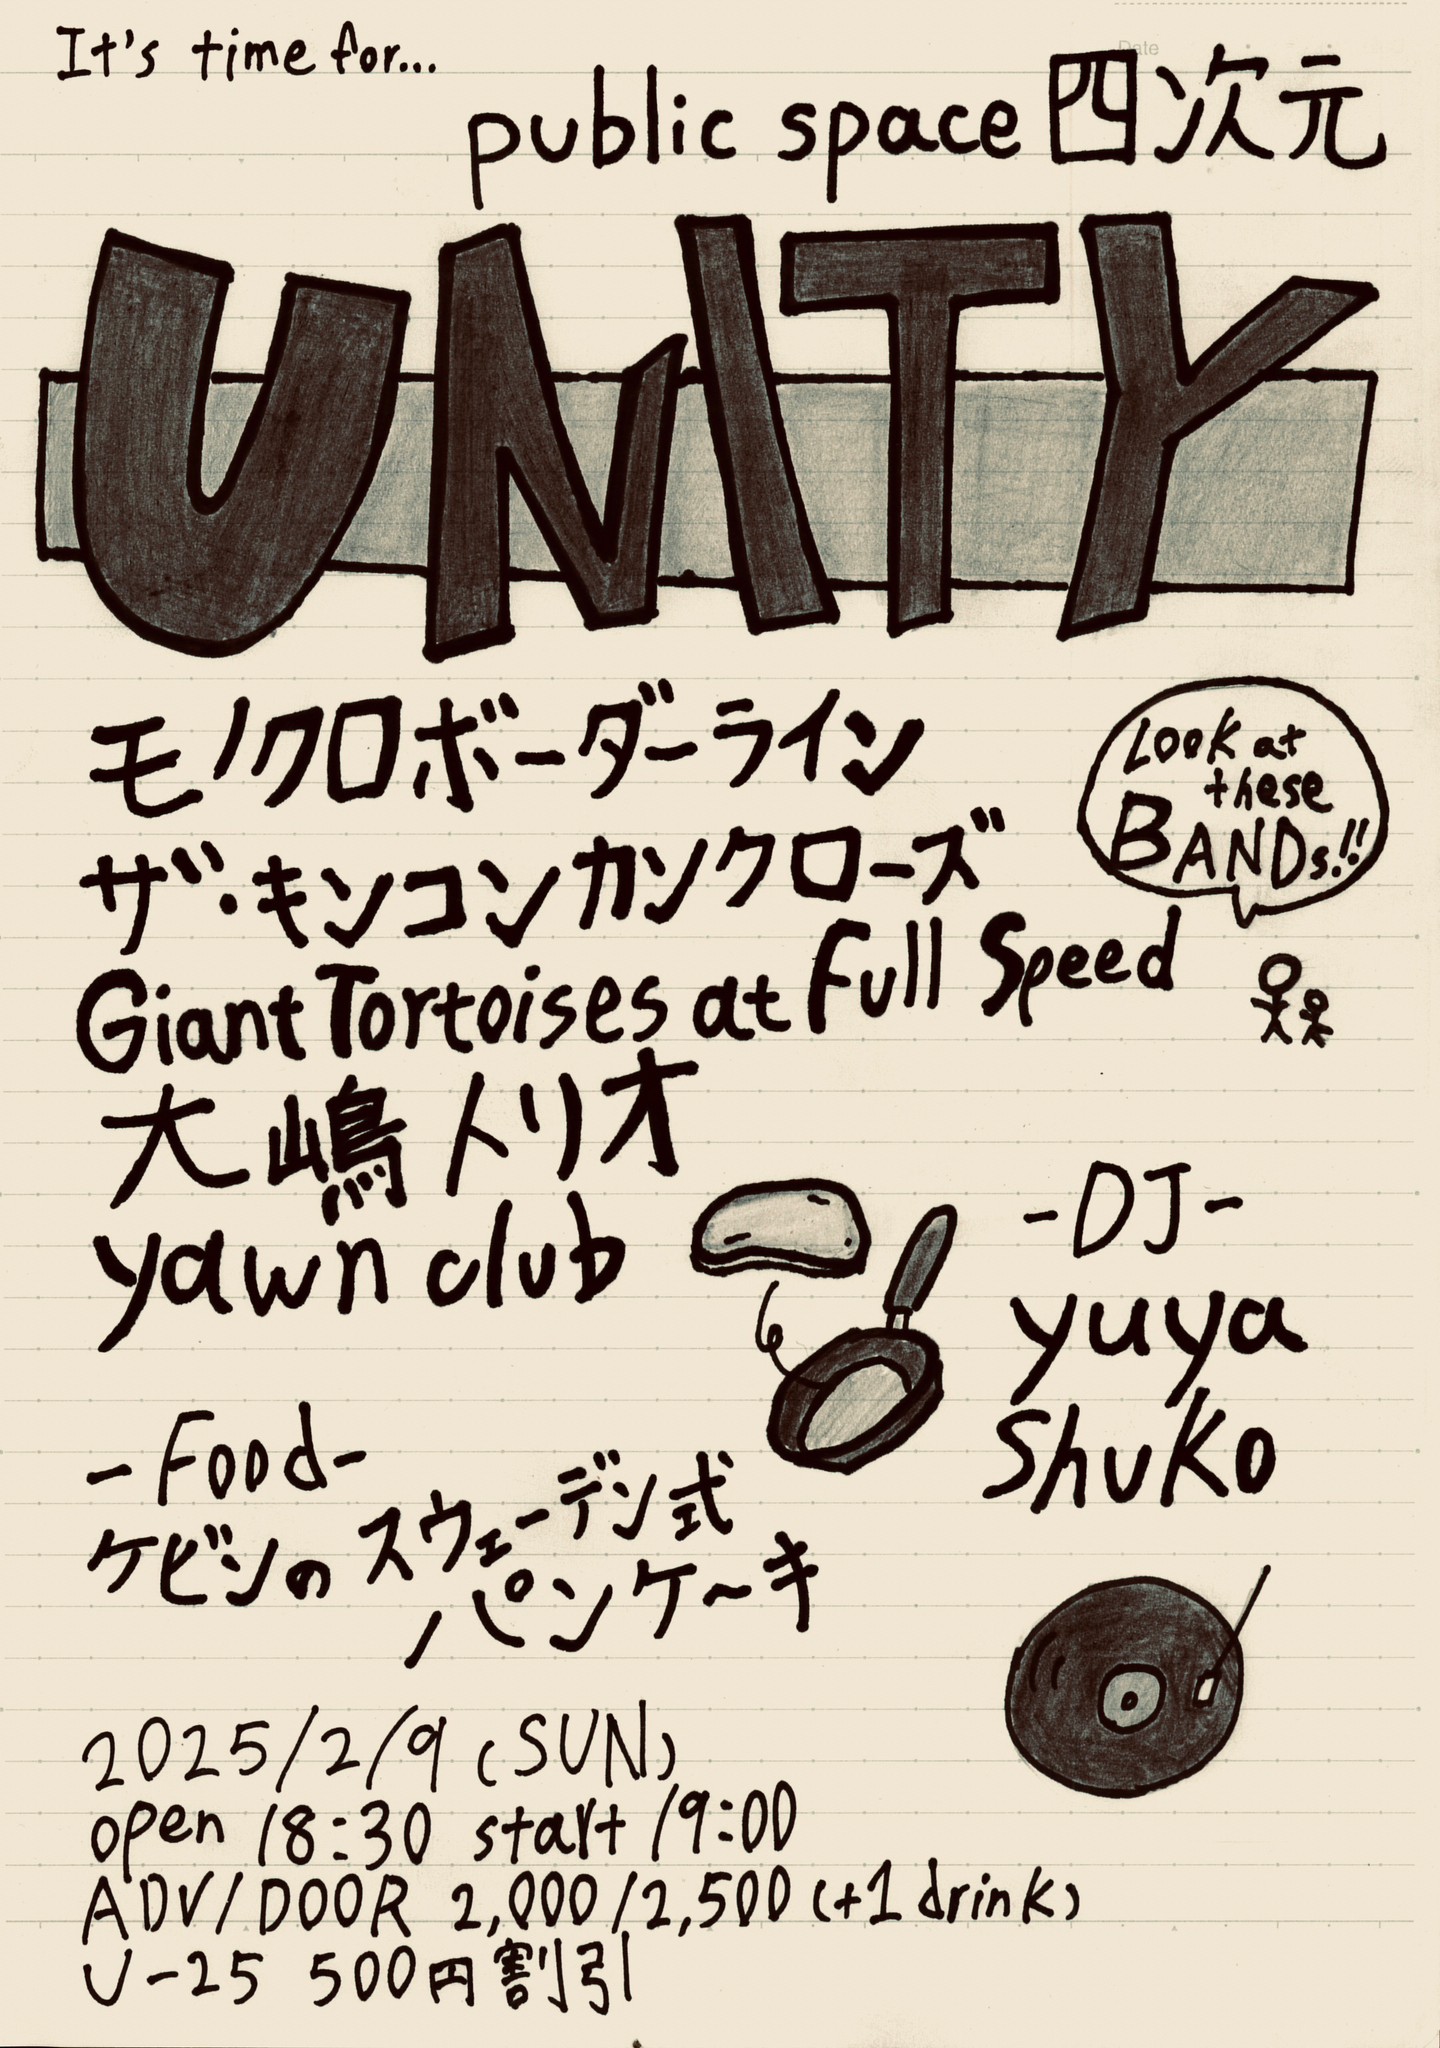 Date
It's time for...
public space 四次元
UNITY
モノクロボーダーライン
ザ・キンコンカンクローズ
Giant Tortoises at Full Speed
大嶋トリオ
yawn club
Look at
these
BANDs!!
-DJ-
yuya
Shuko
-Food-
ケビンのスウェーデン式
パンケーキ
2025/2/9 (SUN)
open 18:30 start 19:00
ADV/DOOR 2,000/2,500 (+1 drink)
U-25 500円割引